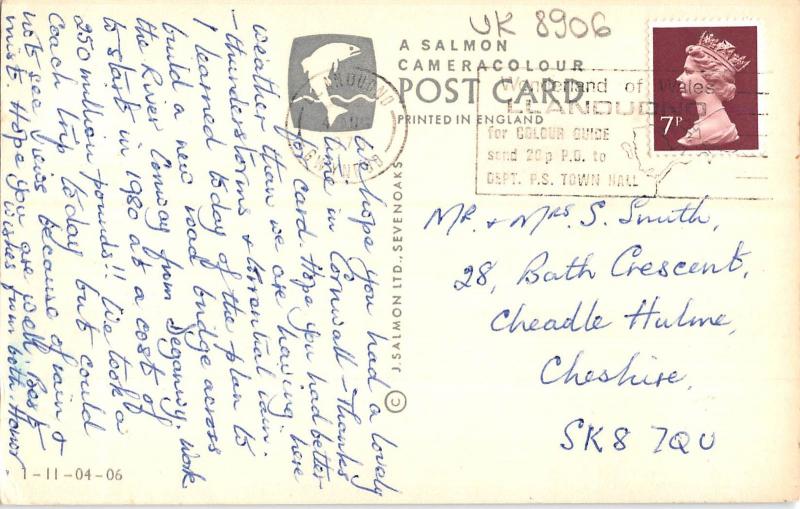 UK 8906
A SALMON
CAMERACOLOUR
POST CARD
PRINTED IN ENGLAND
© J. SALMON LTD., SEVENOAKS
LLANDUDNO
GWYNEDD
Wonderland of Wales
LLANDUDNO
for COLOUR GUIDE
send 20p P.O. to
DEPT. P.S. TOWN HALL
7P
We hope you had a lovely
time in Cornwall - thanks
for card. Hope you had better
weather than we are having here
- thunderstorms & torrential rain.
I learned today of the plan to
build a new road bridge across
the River Conway from Deganwy. Work
to start in 1980 at a cost of
250 million pounds!! We took a
coach trip today but could
not see views because of rain &
mist. Hope you are well. Best
wishes from both
Mr. & Mrs S. Smith,
28, Bath Crescent,
Cheadle Hulme,
Cheshire,
SK8 7QU
1-11-04-06